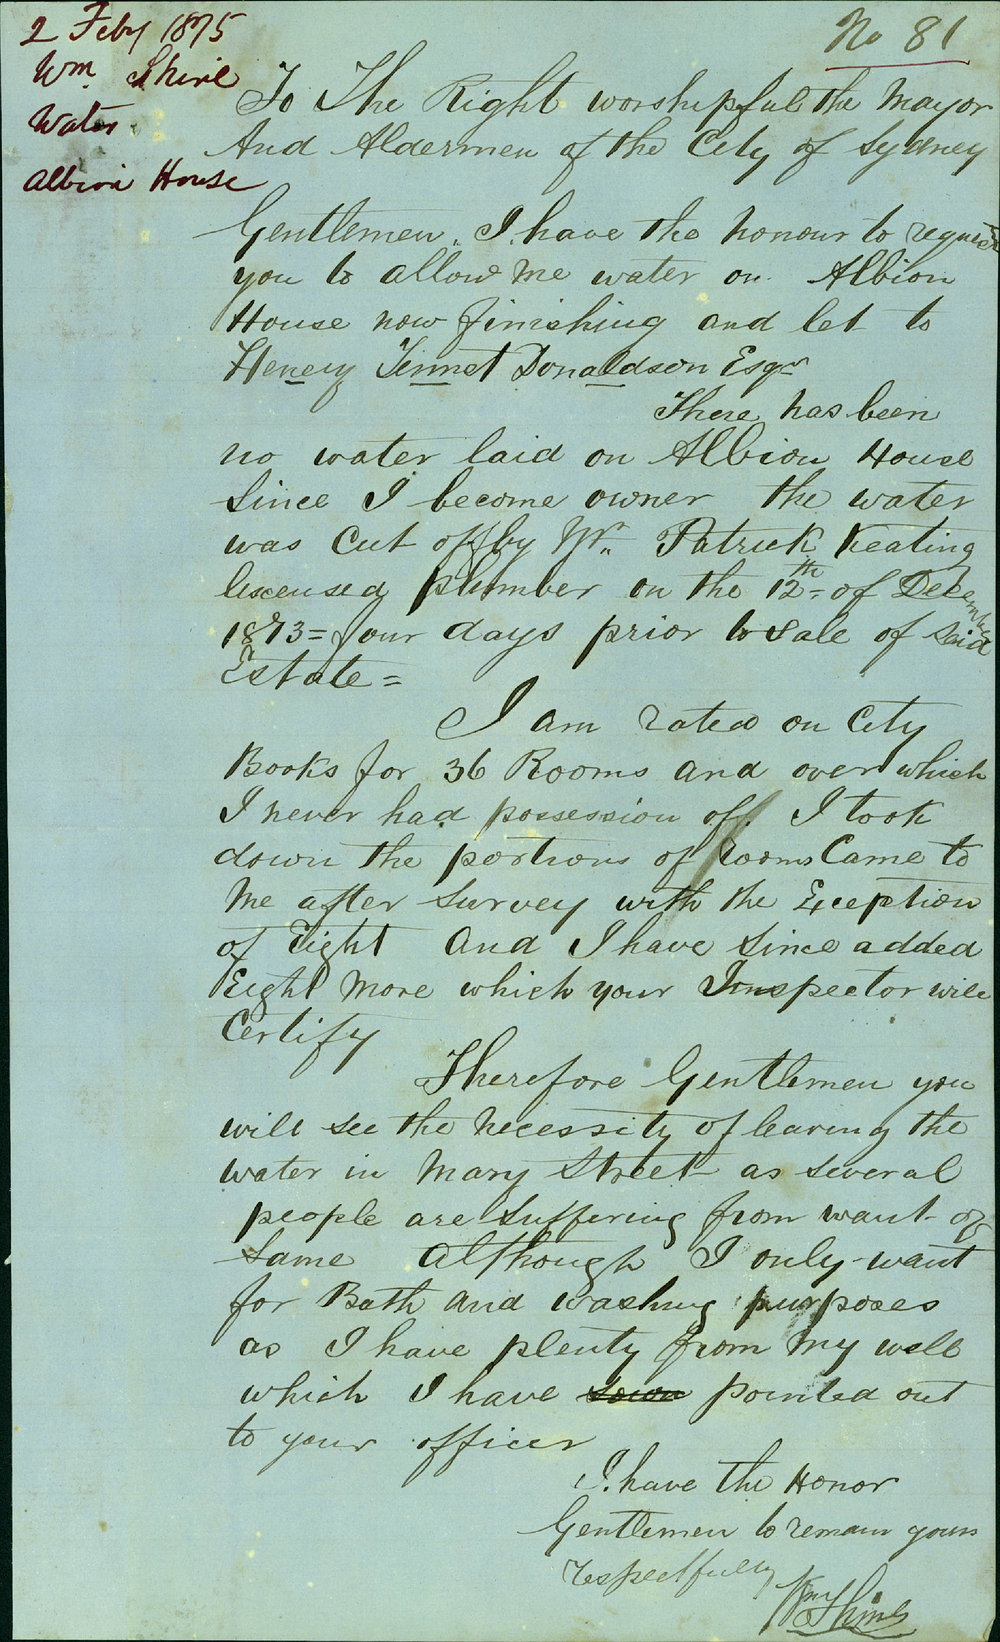 2 Feby 1875
Wm. Shiril
Water
Albion House
No 81
To The Right worshipful the Mayor
And Aldermen of the City of Sydney
Gentlemen, I have the honour to request
you to allow me water on Albion
House now finishing and let to
Henery Tennet Donaldson Esqr
There has been
no water laid on Albion House
Since I become owner the water
was Cut off by Mr. Patrick Keating
liscensed plumber on the 12th = of December
1873 = four days prior to sale of said
Estate =
I am rated on City
Books for 36 Rooms and over which
I never had possession off. I took
down the portions of rooms Came to
Me after Survey with the Exception
of Eight And I have Since added
Eight More which your Innspector will
Certify
Therefore Gentlemen you
will see the necessity of leaving the
water in Mary Street as several
people are suffering from want of
Same Although I only want
for Bath And washing purposes
as I have plenty from My well
which I have pointed out
to your officer
I have the Honor
Gentlemen to remain yours
respectfully
Wm